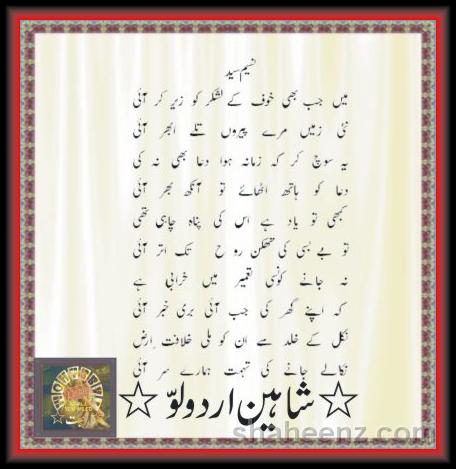 نسیم سید
میں جب بھی خوف کے لشکر کو زیر کر آئی
نئی زمیں مرے پیروں تلے ابھر آئی
یہ سوچ کر کہ زمانہ ہوا دعا بھی نہ کی
دعا کو ہاتھ اٹھائے تو آنکھ بھر آئی
کبھی تو یاد ہے اس کی پناہ چاہی تھی
تو بے بسی کی تھکن روح تک اتر آئی
نہ جانے کونسی تعمیر میں خرابی ہے
کہ اپنے گھر کی جب آئی بری خبر آئی
نکل کے خلد سے ان کو ملی خلافت ارض
نکالے جانے کی تہمت ہمارے سر آئی
☆ شاہین اردو لوّ ☆
shaheenz.com